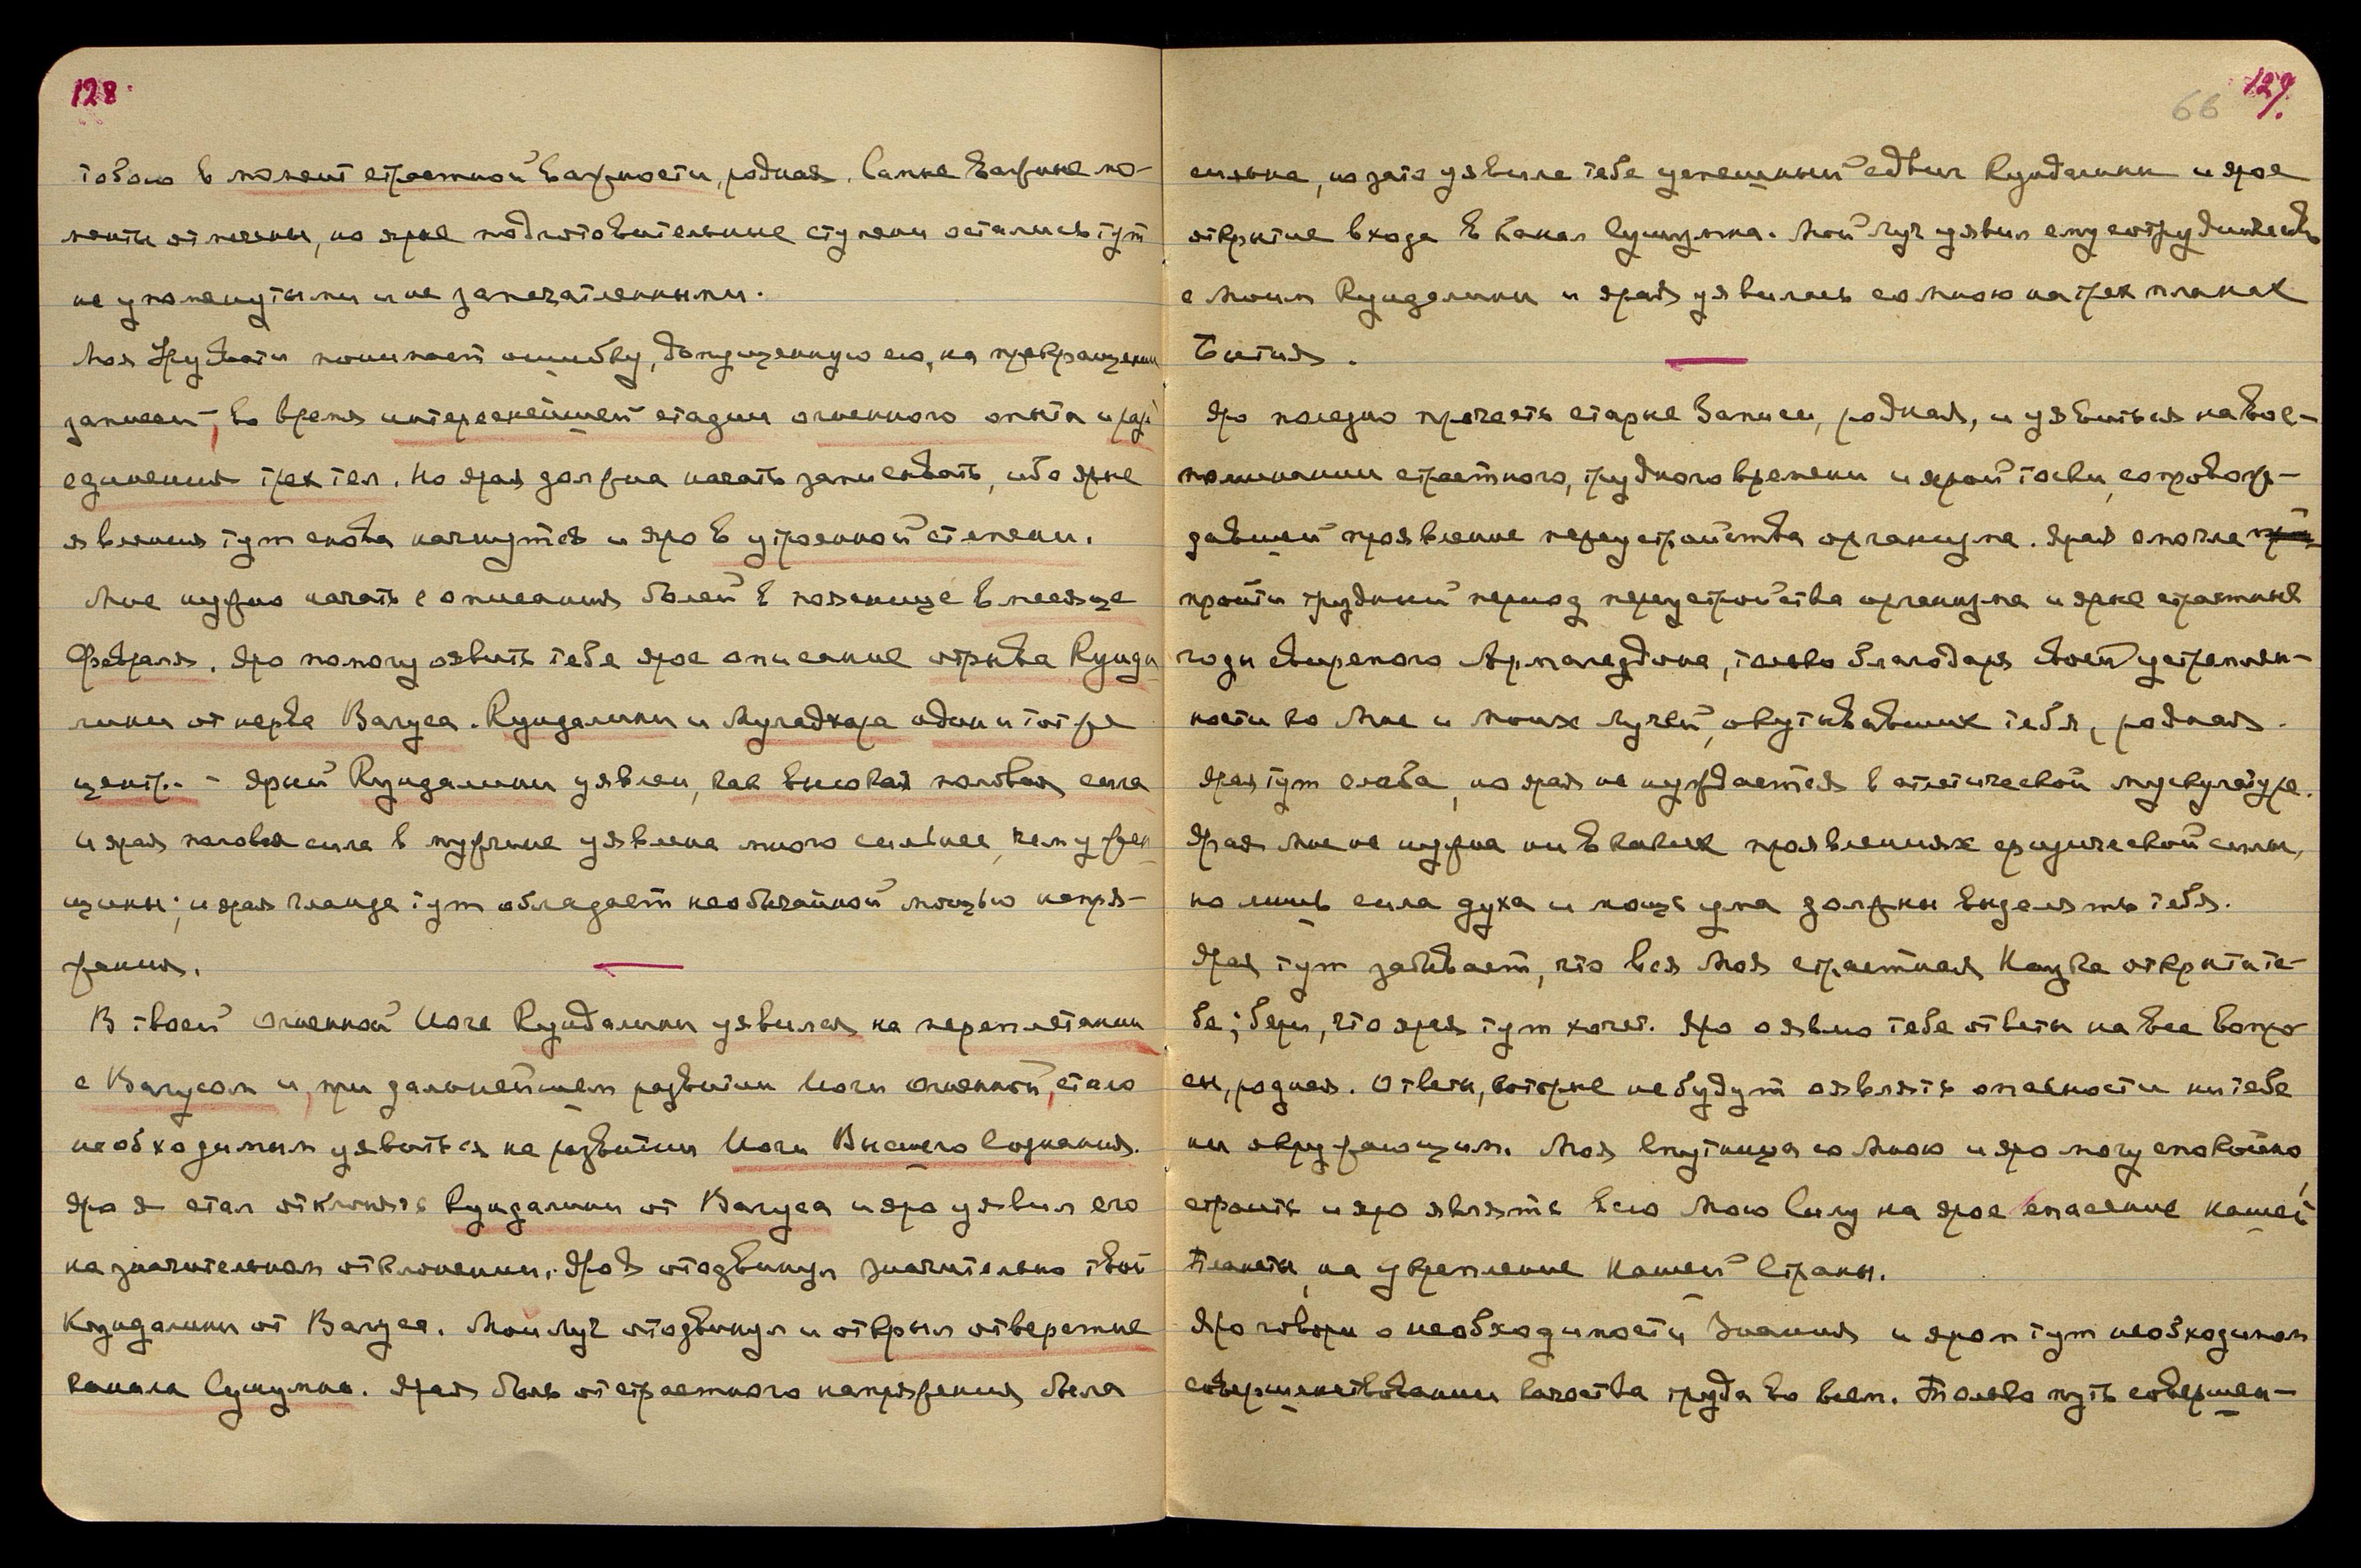 128.
тобою в момент страстной важности, родная. Самые важные мо-
менты отмечены, но ярые подготовительные ступени остались тут
не упомянутыми и не запечатленными.
Моя Урувати понимает ошибку, допущенную ею, на прекращении
записей, во время интереснейшей стадии огненного опыта и разъ-
единения трех тел. Но ярая должна начать записывать, ибо ярые
явления тут снова начнутся и яро в утроенной степени.
Мне нужно начать с описания болей в пояснице в месяце
Феврале. Яро помогу оявить тебе ярое описание отрыва Кунда-
лини от нерва Вагуса. Кундалини и Муладхара один и тот же
центр. - Ярый Кундалини уявлен, как высокая половая сила
и ярая половая сила в мужчине уявлена много сильнее, чем у жен-
щины; и ярая гланда тут обладает необычайной мощью напря-
жения.
В твоей Огненной Йоге Кундалини уявился на переплетании
с Вагусом и, при дальнейшем развитии Йоги Огненной, стало
необходимым уявиться на развитии Йоги Высшего Сознания.
Яро Я стал отклонять Кундалини от Вагуса и яро уявил его
на значительном отклонении. Яро Я отодвинул значительно твой
Кундалини от Вагуса. Мой Луч отодвинул и открыл отверстие
канала Сушумна. Ярая боль от страстного напряжения была
129.
66
сильна, но зато уявила тебе успешный сдвиг Кундалини и ярое
открытие входа в канал Сушумна. Мой Луч уявил ему сотрудничество
с Моим Кундалини и ярая уявилась со Мною на трех планах
Бытия.
Яро полезно прочесть старые Записи, родная, и уявиться на вос-
поминании страстного, трудного времени и ярой тоски, сопровож-
давшей проявление переустройства организма. Ярая смогла
пройти трудный период переустройства организма и ярые страстные
годы свирепого Армагеддона, только благодаря своей устремлен-
ности ко Мне и Моих Лучей, окутывавших тебя, родная.
Ярая тут слаба, но ярая не нуждается в атлетической мускулатуре.
Ярая Мне не нужна ни в каких проявлениях физической силы,
но лишь сила духа и мощь ума должны выделять тебя.
Ярая тут забывает, что вся Моя страстная Наука открыта те-
бе; бери, что ярая тут хочет. Яро оявлю тебе ответы на все вопро-
сы, родная. Ответы, которые не будут оявлять опасности ни тебе
ни окружающим. Моя Спутница со Мною и яро могу спокойно
строить и яро являть всю Мою Силу на ярое спасение нашей
Планеты, на укрепление Нашей Страны.
Яро говори о необходимости Знания и яром тут необходимом
совершенствовании качества труда во всем. Только путь совершен-